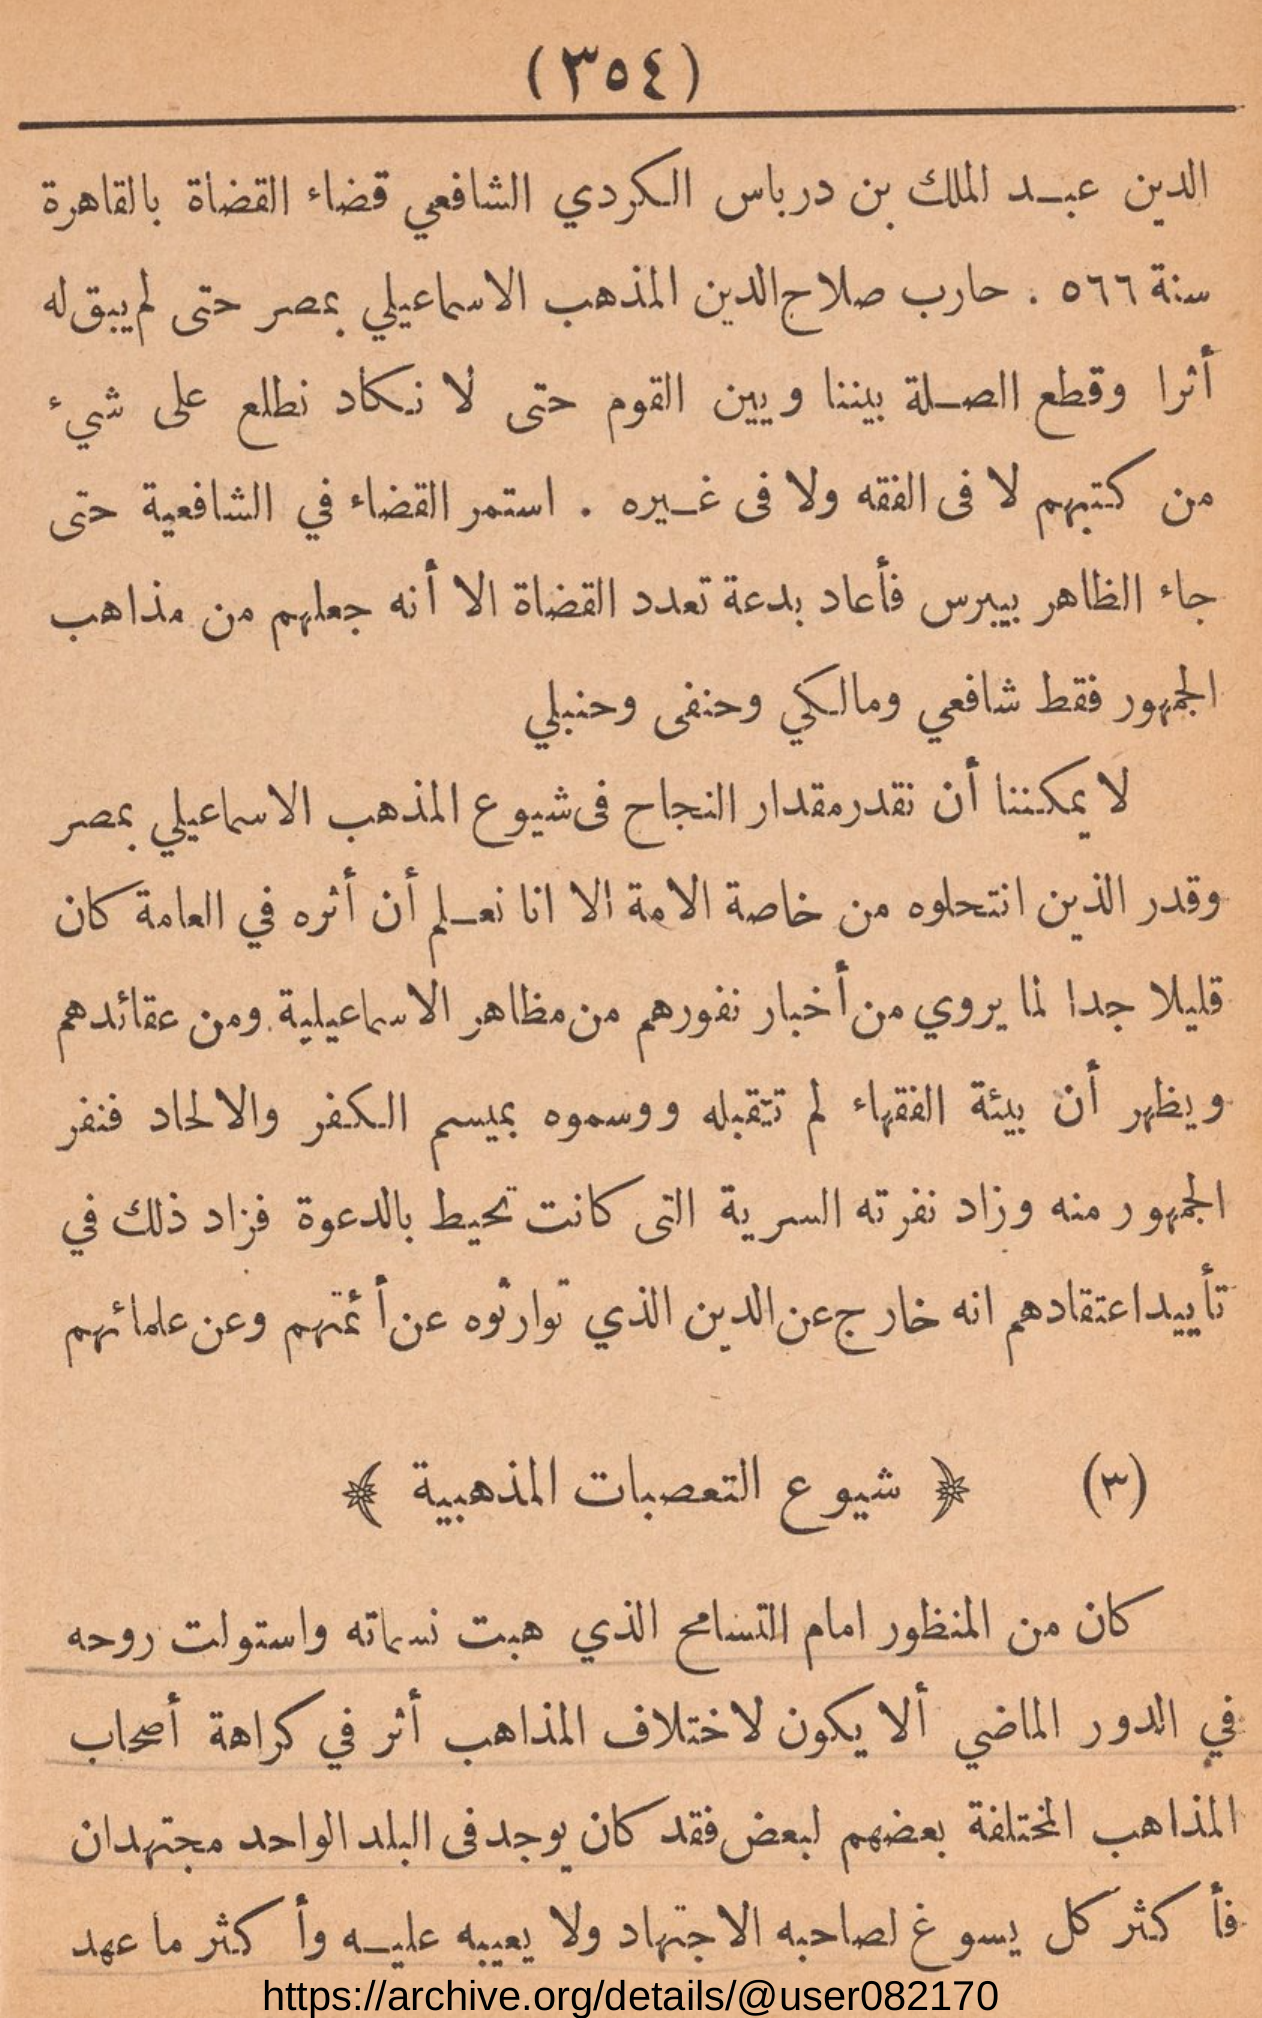 (٣٥٤)
الدين عبد الملك بن درباس الكردي الشافعي قضاء القضاة بالقاهرة
سنة ٥٦٦ . حارب صلاح الدين المذهب الاسماعيلي بمصر حتى لم يبق له
أثرا وقطع الصلة بيننا وبين القوم حتى لا نكاد نطلع على شيء
من كتبهم لا فى الفقه ولا فى غيره . استمر القضاء في الشافعية حتى
جاء الظاهر بيبرس فأعاد بدعة تعدد القضاة الا أنه جعلهم من مذاهب
الجمهور فقط شافعي ومالكي وحنفى وحنبلي
لا يمكننا أن نقدر مقدار النجاح فى شيوع المذهب الاسماعيلي بمصر
وقدر الذين انتحلوه من خاصة الامة الا انا نعلم أن أثره في العامة كان
قليلا جدا لما يروي من أخبار نفورهم من مظاهر الاسماعيلية ومن عقائدهم
ويظهر أن بيئة الفقهاء لم تتقبله ووسموه بميسم الكفر والالحاد فنفر
الجمهور منه وزاد نفرته السرية التى كانت تحيط بالدعوة فزاد ذلك في
تأييد اعتقادهم انه خارج عن الدين الذي توارثوه عن أئمتهم وعن علمائهم
(٣) ﴿ شيوع التعصبات المذهبية ﴾
كان من المنظور امام التسامح الذي هبت نسماته واستولت روحه
في الدور الماضي ألا يكون لاختلاف المذاهب أثر في كراهة أصحاب
المذاهب المختلفة بعضهم لبعض فقد كان يوجد فى البلد الواحد مجتهدان
فأكثر كل يسوغ لصاحبه الاجتهاد ولا يعيبه عليه وأكثر ما عهد
https://archive.org/details/@user082170